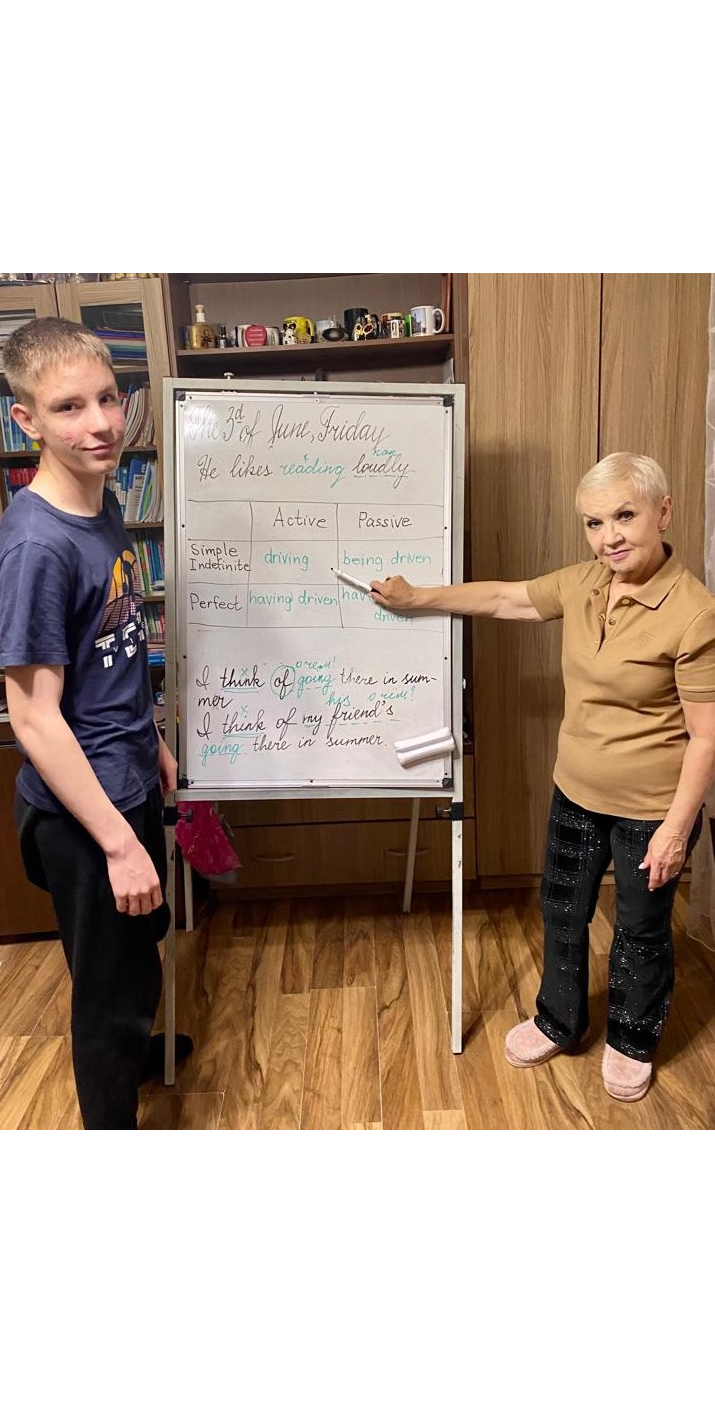 The 3rd of June, Friday
как
He likes reading loudly
Active Passive
Simple
Indefinite driving being driven
Perfect having driven hav
driven
о чём?
I think of going there in sum-
mer
his о чём?
I think of my friend's
going there in summer.